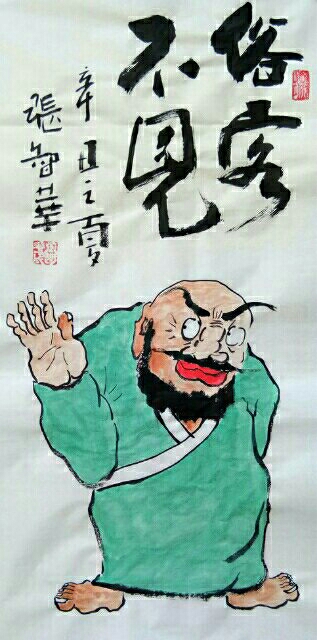 俗客
不見
辛丑之夏
張智華